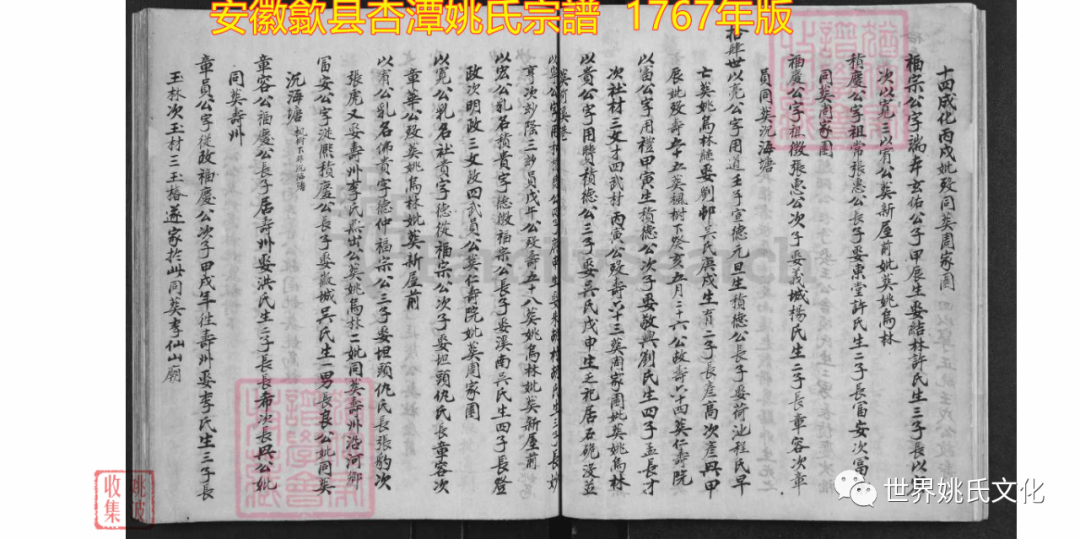 安徽歙县杏潭姚氏宗譜 1767年版
十四成化丙戌姚歿同葬周家園
福宗公字端弃玄佑公子甲辰生娶結林許氏生三子長以
次以寬三以賓公葬新屋前姚葬姚烏林
積慶公字祖常張惠公長子娶東堂許氏生二子長富安次富
同葬周家園
福慶公字祖徵張惠公次子娶義城楊氏生二子長章容次章
員同葬沉海塘
拾肆世以亮公字用道壬子宣德元旦生積德公長子娶荷池程氏早
亡葬姚烏林繼娶劉邨吳氏庚戌生育二子長彦高次彦興甲
辰姚歿壽五十五葬楓樹下癸亥五月二十六公故壽六十四葬仁壽院
以富公字用禮甲寅生積德公次子娶敬興劉氏生四子玉長才
次社材三文才四武材丙寅公歿壽六十三葬周家園姚葬姚烏林
以貴公字用賢積德公三子娶吳氏戊申生乏祀居石硊沒並
亨次妙隆三妙員戊午公歿壽五十八葬姚烏林姚葬新屋前
以宏公乳名積貴字德徵福宗公長子娶溪南吳氏生四子長登
政次明政三文政四武員公葬仁壽院姚葬周家園
以寬公乳名社貴字德從福宗公次子娶坦頭仇氏長童容次
童華公歿葬姚烏林姚葬新屋前
以賓公乳名佛貴字德仲福宗公三子娶坦頭仇氏長張豹次
張虎又娶壽州李氏熙出公葬姚烏林二姚同葬壽州沿河鄉
富安公字從熙積慶公長子娶嚴城吳氏生一男長良公姚同葬
沉海塘
章容公福慶公長子居壽州娶洪氏生二子長長希次長興公姚
同葬壽州
章員公字從政福慶公次子甲戌年往壽州娶李氏生三子長
玉林次玉村三玉椿遂家於此同葬李仙山廟
姚波
收集
世界姚氏文化